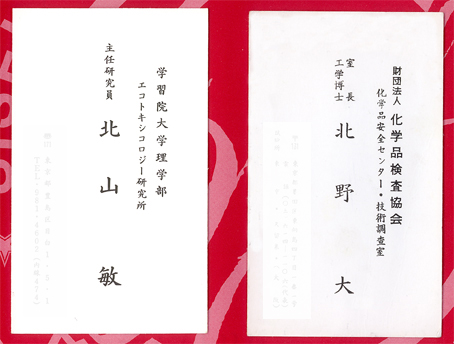 学習院大学理学部
エコトキシコロジー研究所
主任研究員
北山敏
財団法人 化学品検査協会
化学品安全センター・技術調査室
室長
工学博士
北野大